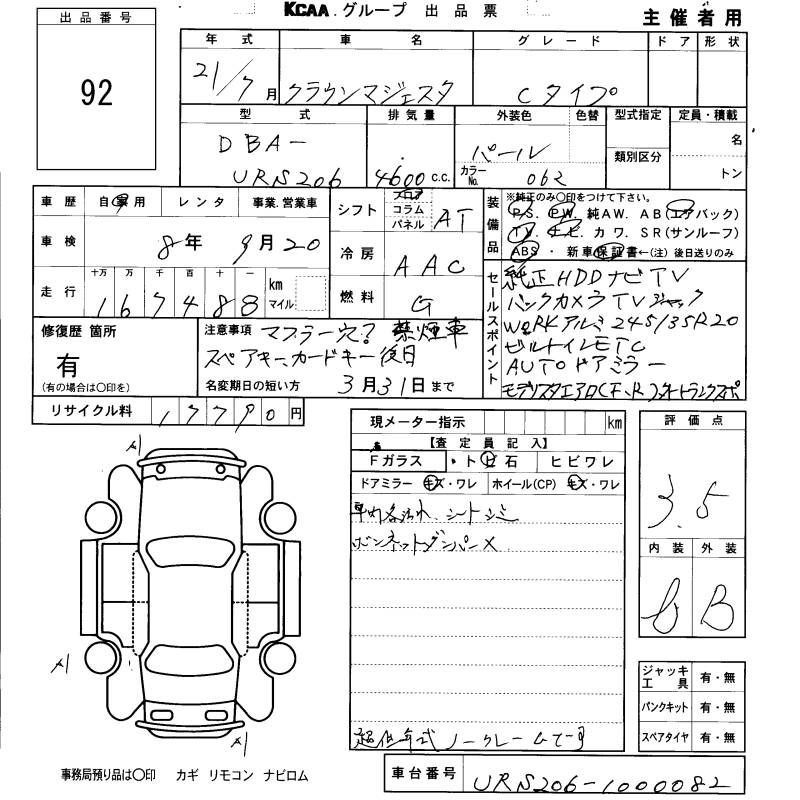 KCAA.グループ 出品票
主催者用
出品番号
92
年式 車名 グレード ドア 形状
21/7月 クラウンマジェスタ Cタイプ
型式 排気量 外装色 色替 型式指定 定員・積載
DBA- パール 名
類別区分
URS206 4600 c.c. カラーNo. 062 トン
車歴 自家用 レンタ 事業.営業車
シフト フロア コラム パネル AT
車検 8年 9月20
冷房 AAC
走行 十万 万 千 百 十 一 km マイル
167488
燃料 G
装備品
※純正のみ○印をつけて下さい。
P.S. P.W. 純AW. AB(エアバック)
T.V. ナビ カワ. SR(サンルーフ)
ABS・新車保証書←(注)後日送りのみ
セールスポイント
純正HDDナビTV
バックカメラTVジャック
WORKアルミ245/35R20
ビルトインETC
AUTOドアミラー
モデリスタエアロ(F、R)
修復歴 箇所
有
(有の場合は○印を)
注意事項 マフラー穴? 禁煙車
スペアキー、カードキー後日
名変期日の短い方 3月31日まで
リサイクル料 17790円
現メーター指示 km
【査定員記入】
Fガラス・ト(ビ)石 ヒビワレ
ドアミラー キズ・ワレ ホイール(CP) キズ・ワレ
シートシミ
ボンネットダンパーX
超低年式 ノークレームで
評価点
3.5
内装 外装
B
ジャッキ 工具 有・無
パンクキット 有・無
スペアタイヤ 有・無
A1
A1
A1
A1
事務局預り品は○印 カギ リモコン ナビロム
車台番号 URS206-1000082